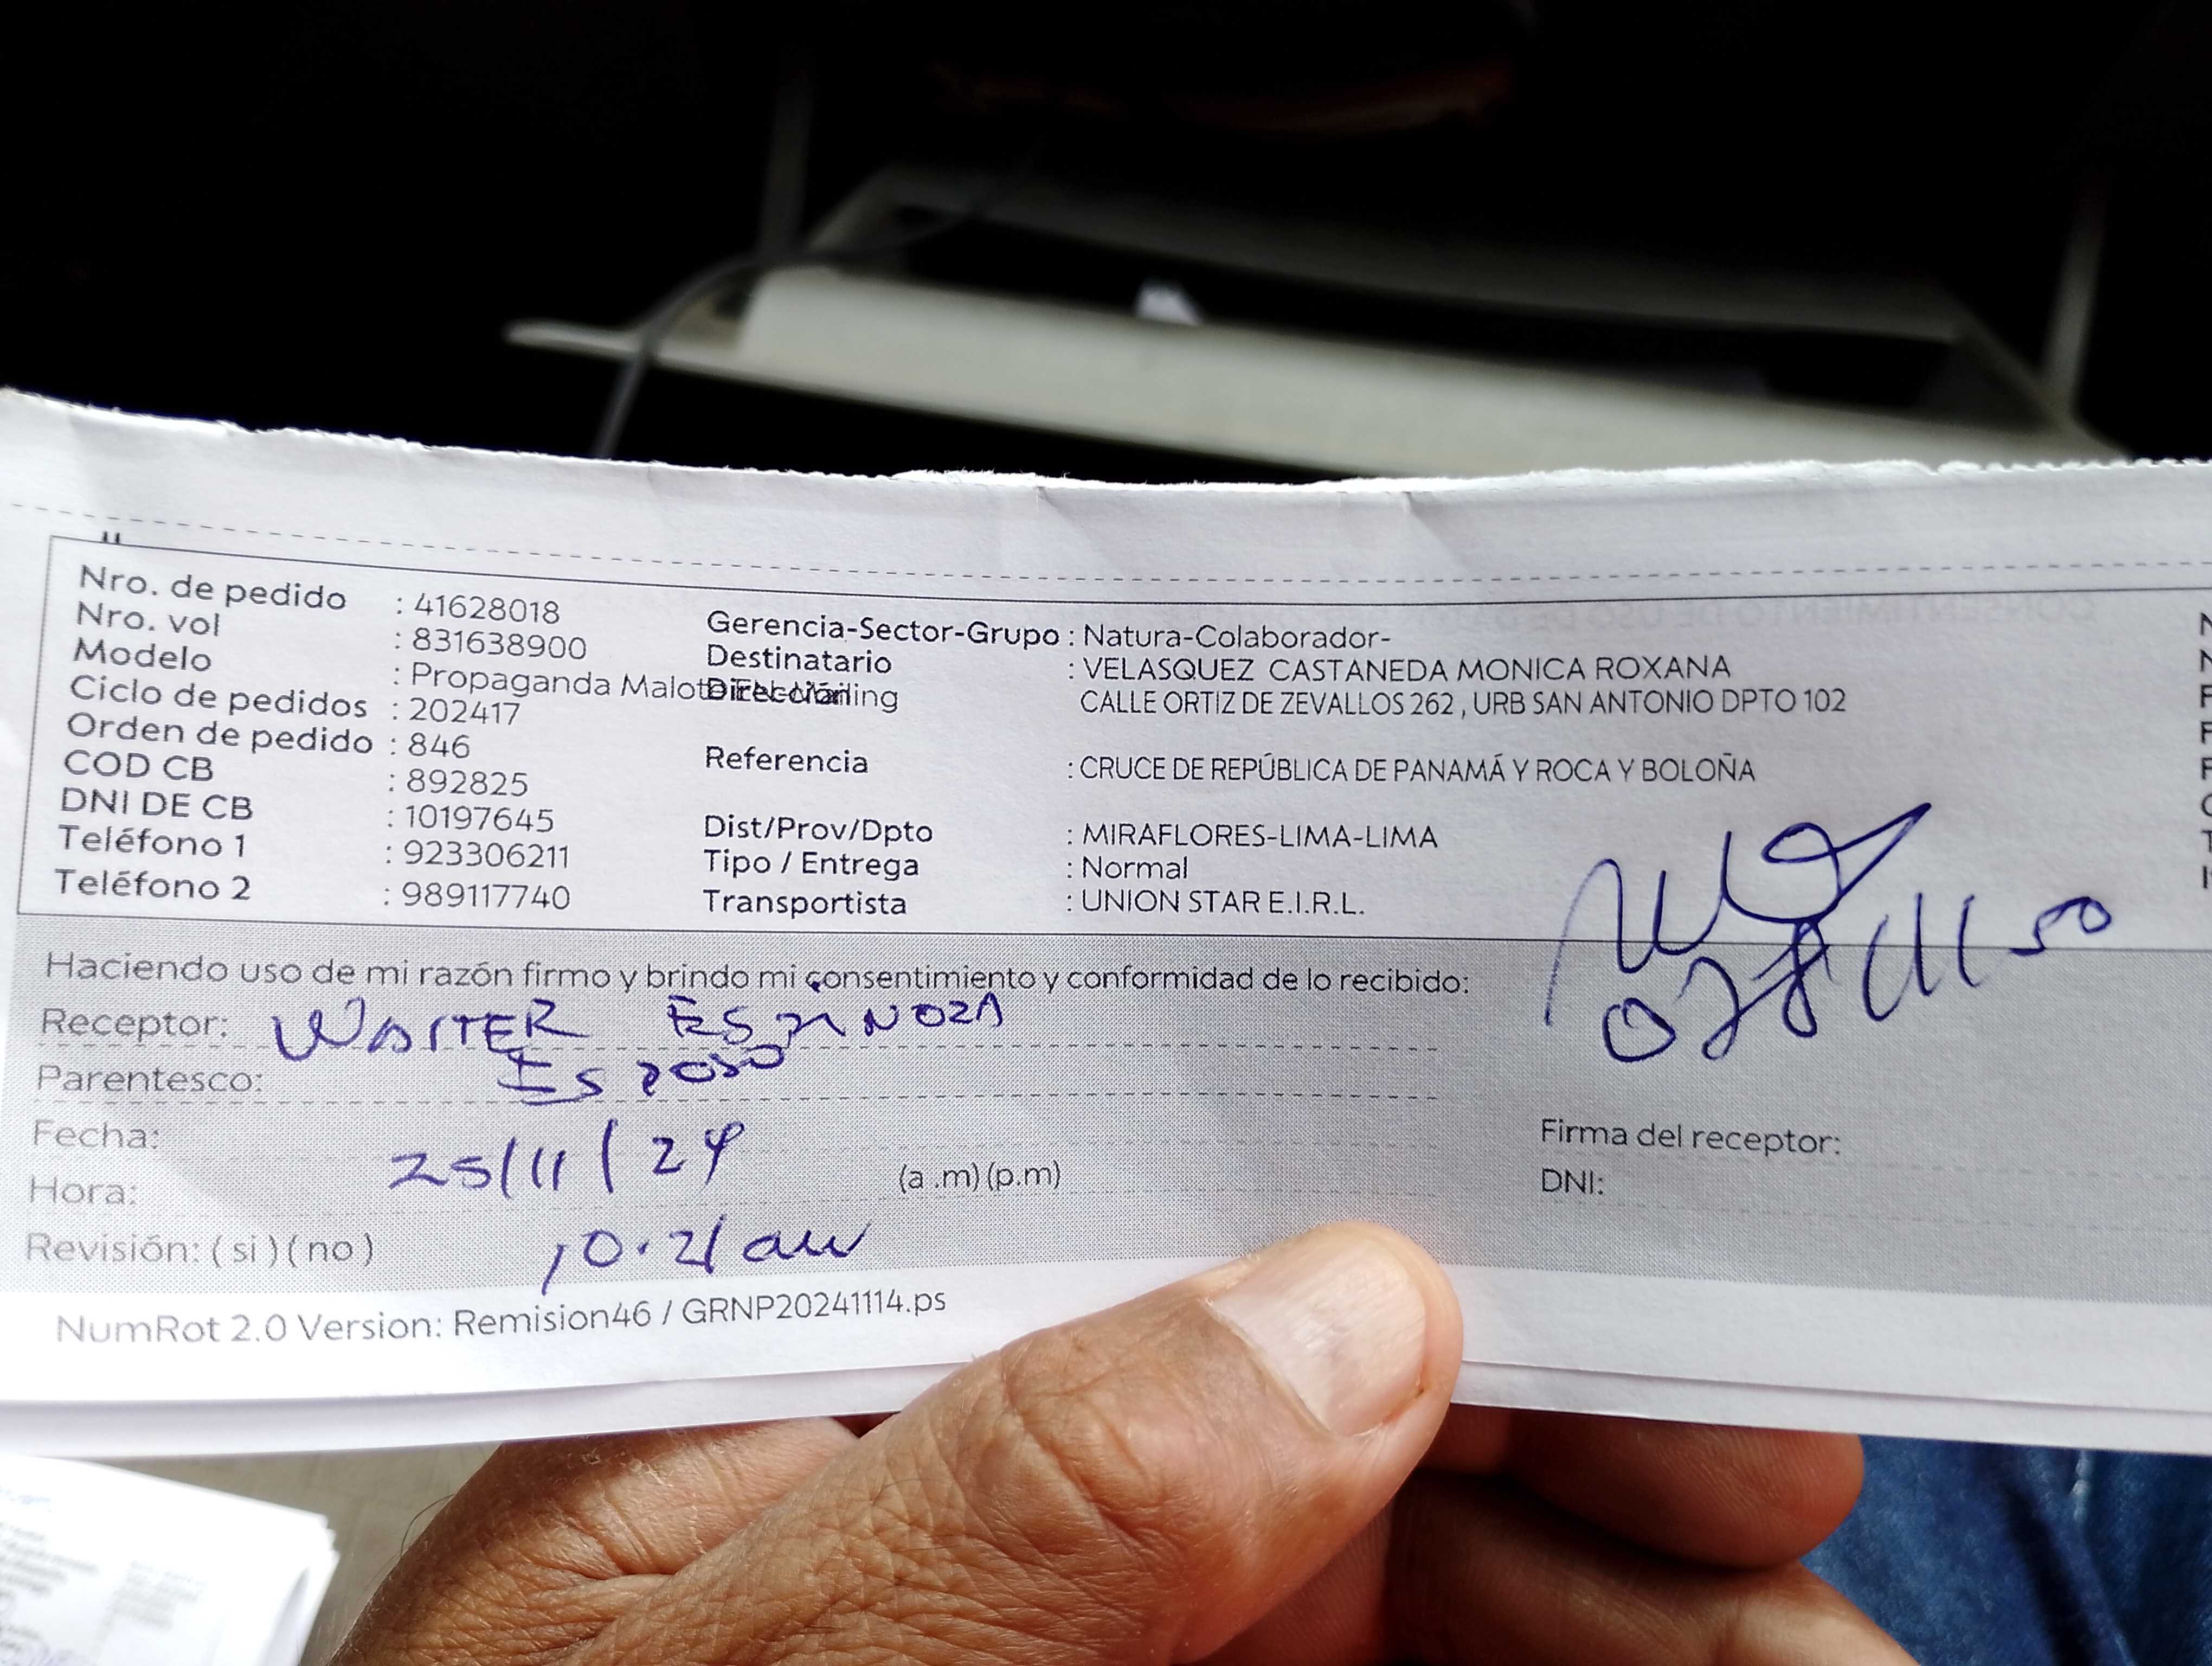 Nro. de pedido : 41628018
Nro. vol : 831638900
Modelo : Propaganda
Ciclo de pedidos : 202417
Orden de pedido : 846
COD CB : 892825
DNI DE CB : 10197645
Teléfono 1 : 923306211
Teléfono 2 : 989117740
Gerencia-Sector-Grupo : Natura-Colaborador-
Destinatario : VELASQUEZ CASTANEDA MONICA ROXANA
Dirección CALLE ORTIZ DE ZEVALLOS 262 , URB SAN ANTONIO DPTO 102
Referencia : CRUCE DE REPÚBLICA DE PANAMÁ Y ROCA Y BOLOÑA
Dist/Prov/Dpto : MIRAFLORES-LIMA-LIMA
Tipo / Entrega : Normal
Transportista : UNION STAR E.I.R.L.
Haciendo uso de mi razón firmo y brindo mi consentimiento y conformidad de lo recibido:
Receptor: WALTER ESPINOZA
Parentesco: ESPOSO
Fecha: 25/11/24
Hora: (a .m) (p.m)
Revisión: ( si ) ( no ) 10.21 am
Firma del receptor:
DNI:
NumRot 2.0 Version: Remision46 / GRNP20241114.ps